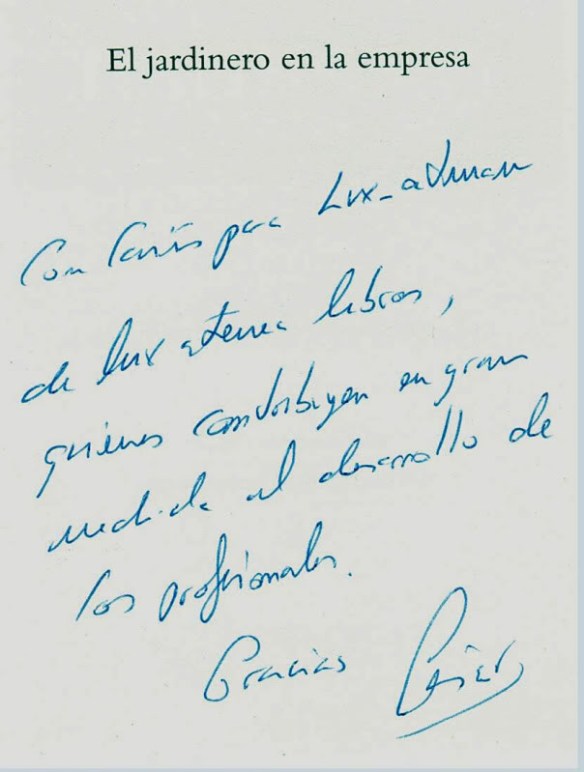 El jardinero en la empresa
Con Cariño para Lux_atman
de lux atenea libros,
quienes contribuyen en gran
medida al desarrollo de
los profesionales.
Gracias César